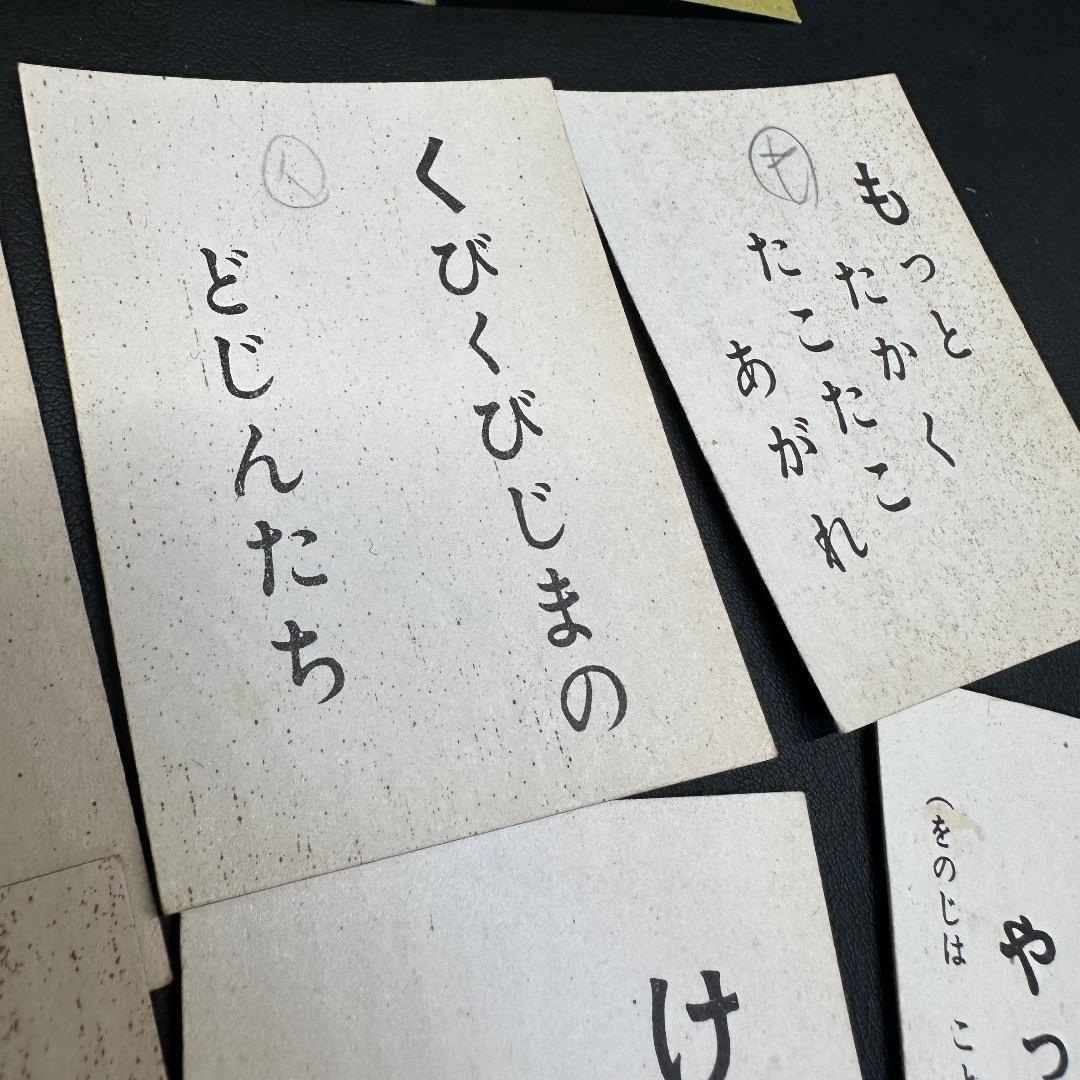 くびくびじまの
どじんたち
もっと
たかく
たこたこ
あがれ
け
やっ
(をのじは こと